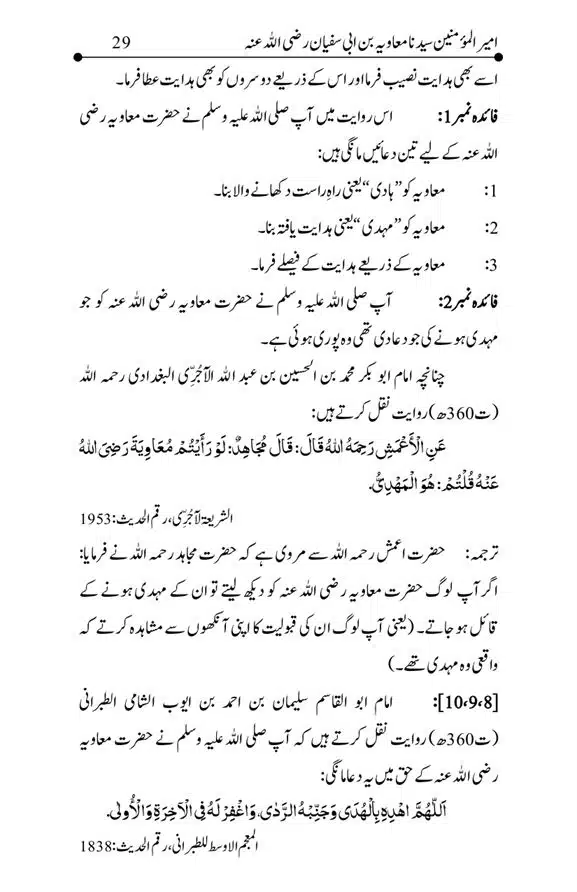 امیر المؤمنین سیدنا معاویہ بن ابی سفیان رضی اللہ عنہ 29
اسے بھی ہدایت نصیب فرما اور اس کے ذریعے دوسروں کو بھی ہدایت عطا فرما۔
فائدہ نمبر1: اس روایت میں آپ صلی اللہ علیہ وسلم نے حضرت معاویہ رضی
اللہ عنہ کے لیے تین دعائیں مانگی ہیں:
1: معاویہ کو ”ہادی“ یعنی راہِ راست دکھانے والا بنا۔
2: معاویہ کو ”مہدی“ یعنی ہدایت یافتہ بنا۔
3: معاویہ کے ذریعے ہدایت کے فیصلے فرما۔
فائدہ نمبر2: آپ صلی اللہ علیہ وسلم نے حضرت معاویہ رضی اللہ عنہ کو جو
مہدی ہونے کی جو دعا دی تھی وہ پوری ہوئی ہے۔
چنانچہ امام ابو بکر محمد بن الحسین بن عبد اللہ الآجُرِّی البغدادی رحمہ اللہ
(ت360ھ) روایت نقل کرتے ہیں:
عَنِ الْأَعْمَشِ رَحِمَهُ اللهُ قَالَ: قَالَ مُجَاهِدٌ: لَوْ رَأَيْتُمْ مُعَاوِيَةَ رَضِيَ اللهُ
عَنْهُ قُلْتُمْ: هُوَ الْمَهْدِيُّ.
الشریعۃ لآجُرِّی، رقم الحدیث:1953
ترجمہ: حضرت اعمش رحمہ اللہ سے مروی ہے کہ حضرت مجاہد رحمہ اللہ نے فرمایا:
اگر آپ لوگ حضرت معاویہ رضی اللہ عنہ کو دیکھ لیتے تو ان کے مہدی ہونے کے
قائل ہو جاتے۔ (یعنی آپ لوگ ان کی قبولیت کا اپنی آنکھوں سے مشاہدہ کرتے کہ
واقعی وہ مہدی تھے۔)
[10،9،8]: امام ابو القاسم سلیمان بن احمد بن ایوب الشامی الطبرانی
(ت360ھ) روایت نقل کرتے ہیں کہ آپ صلی اللہ علیہ وسلم نے حضرت معاویہ
رضی اللہ عنہ کے حق میں یہ دعا مانگی:
اَللّٰهُمَّ اهْدِهٖ بِالْهُدَى وَجَنِّبْهُ الرَّدٰى، وَاغْفِرْ لَهٗ فِي الْآخِرَةِ وَالْأُولٰى.
المعجم الاوسط للطبرانی، رقم الحدیث:1838